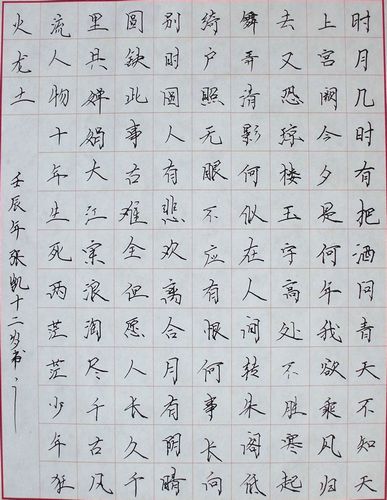 时月几时有把酒问青天不知天
上宫阙今夕是何年我欲乘风归
去又恐琼楼玉宇高处不胜寒起
舞弄清影何似在人间转朱阁低
绮户照无眠不应有恨何事长向
别时圆人有悲欢离合月有阴晴
圆缺此事古难全但愿人长久千
里共婵娟大江东浪淘尽千古风
流人物十年生死两茫茫少年狂
火龙土
壬辰年张凯十二岁书